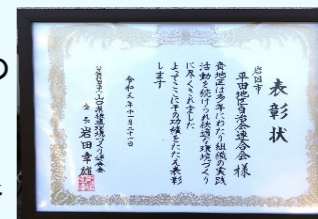 表彰状
岩国市
平田地区自治会連合会様
貴地区は多年にわたり組織の実践
活動を続けられ快適な環境づくり
に尽くされました
よってここにその功績をたたえ表彰
します
令和元年十一月二十一日
山口県快適環境づくり連合会
会長 岩田幸雄
の